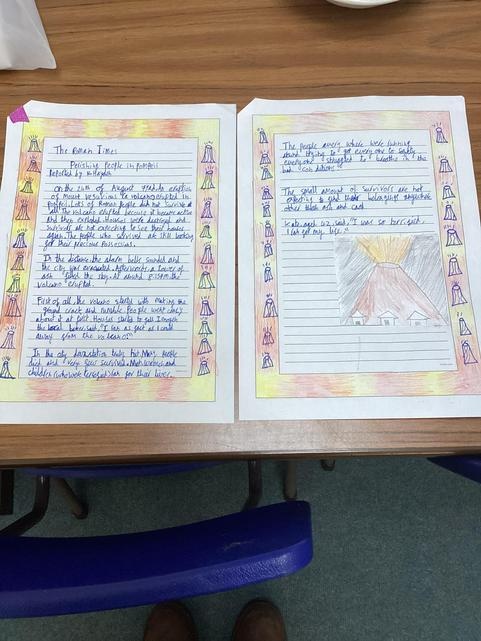 The Roman Times
Perishing People in Pompeii
Reported by
On the 24th of August
of Mount Vesuvius a volcano erupted in
Pompeii. Lots of Roman People did not survive at
all. The volcano erupted because it became active
and then exploded. Houses were destroyed and
survivors are not expecting to see their houses
again. The people who survived are still looking
for their precious
In the distance, the alarm bells sounded and
the city was evacuated. Afterwards, a tower of
ash the city. At around the
volcano erupted.
First of all, the volcano started with making the
ground crack and rumble. People were
about it at first. Houses started to fall
the local said, "I ran as fast as I could
away from the
In the city, devastation but Many people
died and very few survived. Most women and
children for their lives.
The people every where were running
around trying to get everyone to safety
everyone struggled to breathe in the
conditions.
The small amount of survivors are not
expecting to find their belongings
other than ash and
Kate, aged 42, said, "I was so terrified,
I ran for my life."